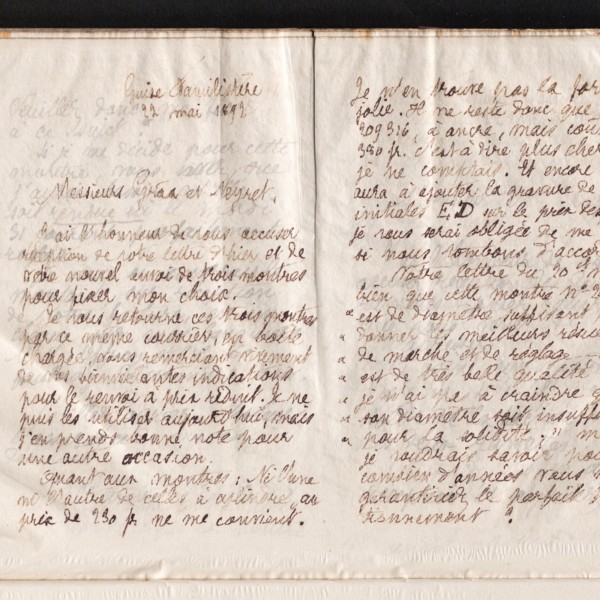 Guise Familistère
22 mai 1892
Messieurs et Neyret.
J'ai l'honneur de vous accuser
réception de votre lettre d'hier et de
votre nouvel envoi de trois montres
pour fixer mon choix.
Je vous retourne ces trois montres
par ce même courrier, en boîte
chargée vous remerciant vivement
de vos bienveillantes indications
pour le renvoi à prix réduit. Je ne
puis les utiliser aujourd'hui, mais
j'en prends bonne note pour
une autre occasion.
Quant aux montres : Ni l'une
ni l'autre de celles à cylindre, au
prix de 230 fr ne me convient.
Je n'en trouve pas la for
jolie. Il ne reste donc que
209316, à ancre, mais coût
350 fr. c'est à dire plus cher
je ne comptais. Et encore
aura à ajouter la gravure de
initiales E, D sur le prix des
je vous serai obligée de me
si nous tombons d'accor
Votre lettre du 20 m
bien que cette montre N° 2
" est de diamètre suffisant
" donner les meilleurs résul
" de marche et de réglage
" est de très belle qualité
" je n'ai pas à craindre q
" son diamètre soit insuff
" pour la solidité. " m
je voudrais savoir pou
combien d'années vous
garantiriez le parfait
tionnement ?